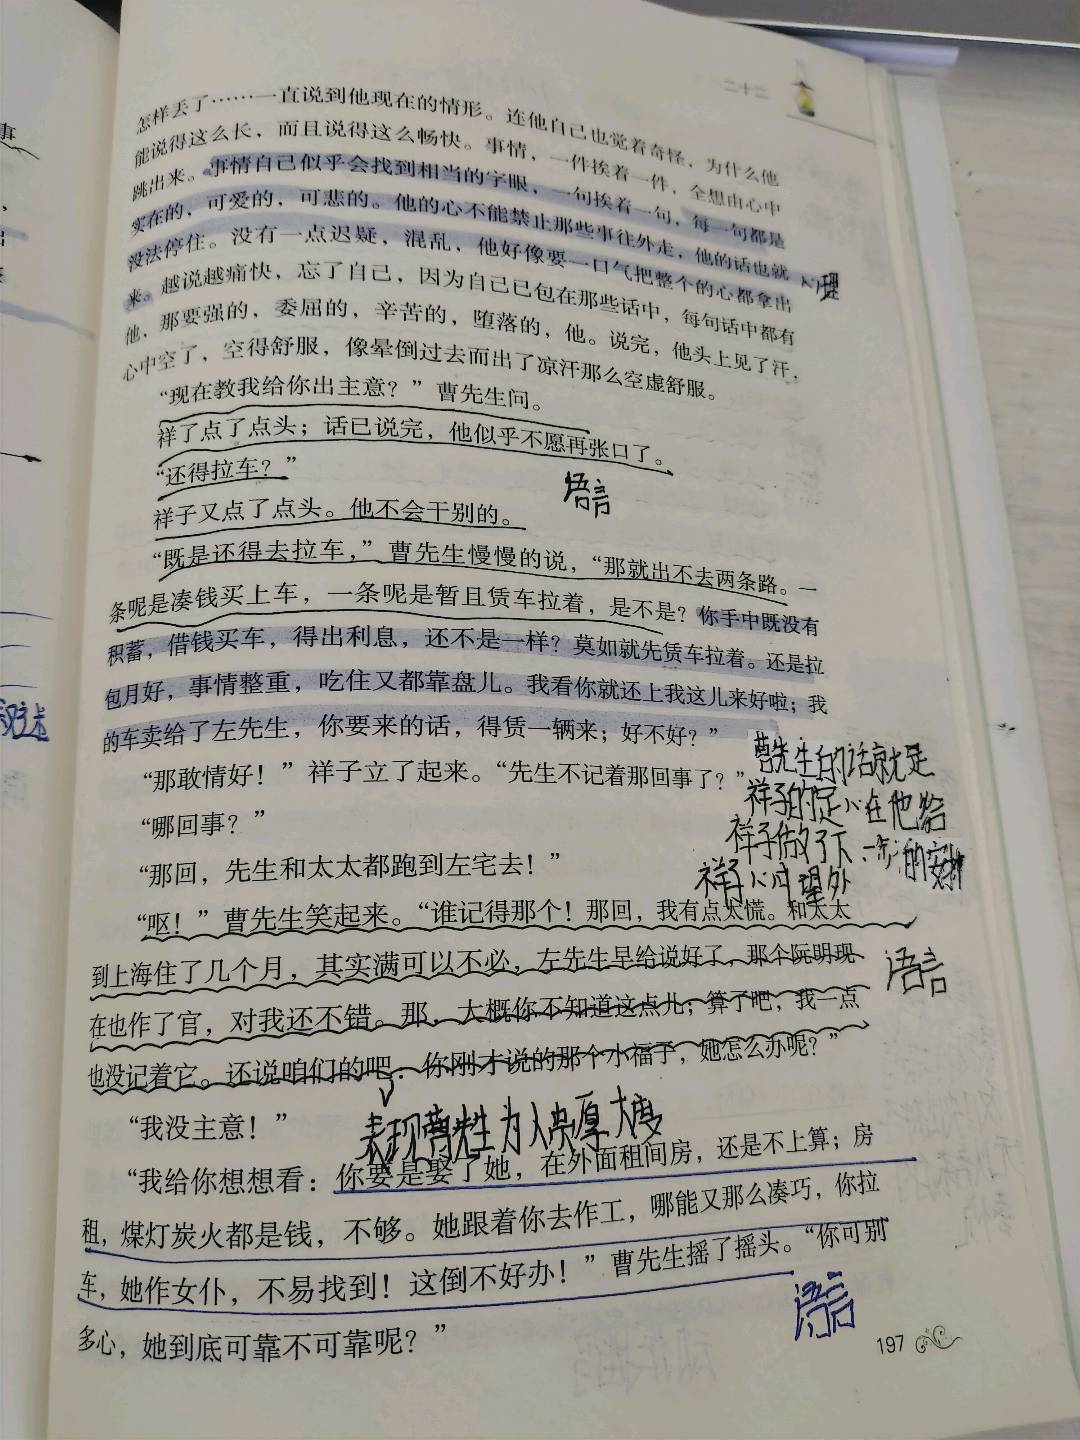 二十二
怎样丢了……一直说到他现在的情形。连他自己也觉着奇怪，为什么他
能说得这么长，而且说得这么畅快。事情，一件挨着一件，全想由心中
跳出来。事情自己似乎会找到相当的字眼，一句挨着一句，每一句都是
实在的，可爱的，可悲的。他的心不能禁止那些事往外走，他的话也就
没法停住。没有一点迟疑，混乱，他好像要一口气把整个的心都拿出
心理
来。越说越痛快，忘了自己，因为自己已包在那些话中，每句话中都有
他，那要强的，委屈的，辛苦的，堕落的，他。说完，他头上见了汗，
心中空了，空得舒服，像晕倒过去而出了凉汗那么空虚舒服。
“现在教我给你出主意？”曹先生问。
祥了点了点头；话已说完，他似乎不愿再张口了。
“还得拉车？”
语言
祥子又点了点头。他不会干别的。
“既是还得去拉车，”曹先生慢慢的说，“那就出不去两条路。一
条呢是凑钱买上车，一条呢是暂且赁车拉着，是不是？你手中既没有
积蓄，借钱买车，得出利息，还不是一样？莫如就先赁车拉着。还是拉
包月好，事情整重，吃住又都靠盘儿。我看你就还上我这儿来好啦；我
的车卖给了左先生，你要来的话，得赁一辆来；好不好？”
曹先生的话就是
“那敢情好！”祥子立了起来。“先生不记着那回事了？”
祥子的定心在他给
“哪回事？”
祥子做了下一步的安排
“那回，先生和太太都跑到左宅去！”
祥子心中望外
“呕！”曹先生笑起来。“谁记得那个！那回，我有点太慌。和太太
到上海住了几个月，其实满可以不必，左先生早给说好了，那个阮明现
语言
在也作了官，对我还不错。那，大概你不知道这点儿；算了吧，我一点
也没记着它。还说咱们的吧：你刚才说的那个小福子，她怎么办呢？”
“我没主意！”
表现曹先生为人忠厚大度
“我给你想想看：你要是娶了她，在外面租间房，还是不上算；房
租，煤灯炭火都是钱，不够。她跟着你去作工，哪能又那么凑巧，你拉
车，她作女仆，不易找到！这倒不好办！”曹先生摇了摇头。“你可别
语言
多心，她到底可靠不可靠呢？”
197